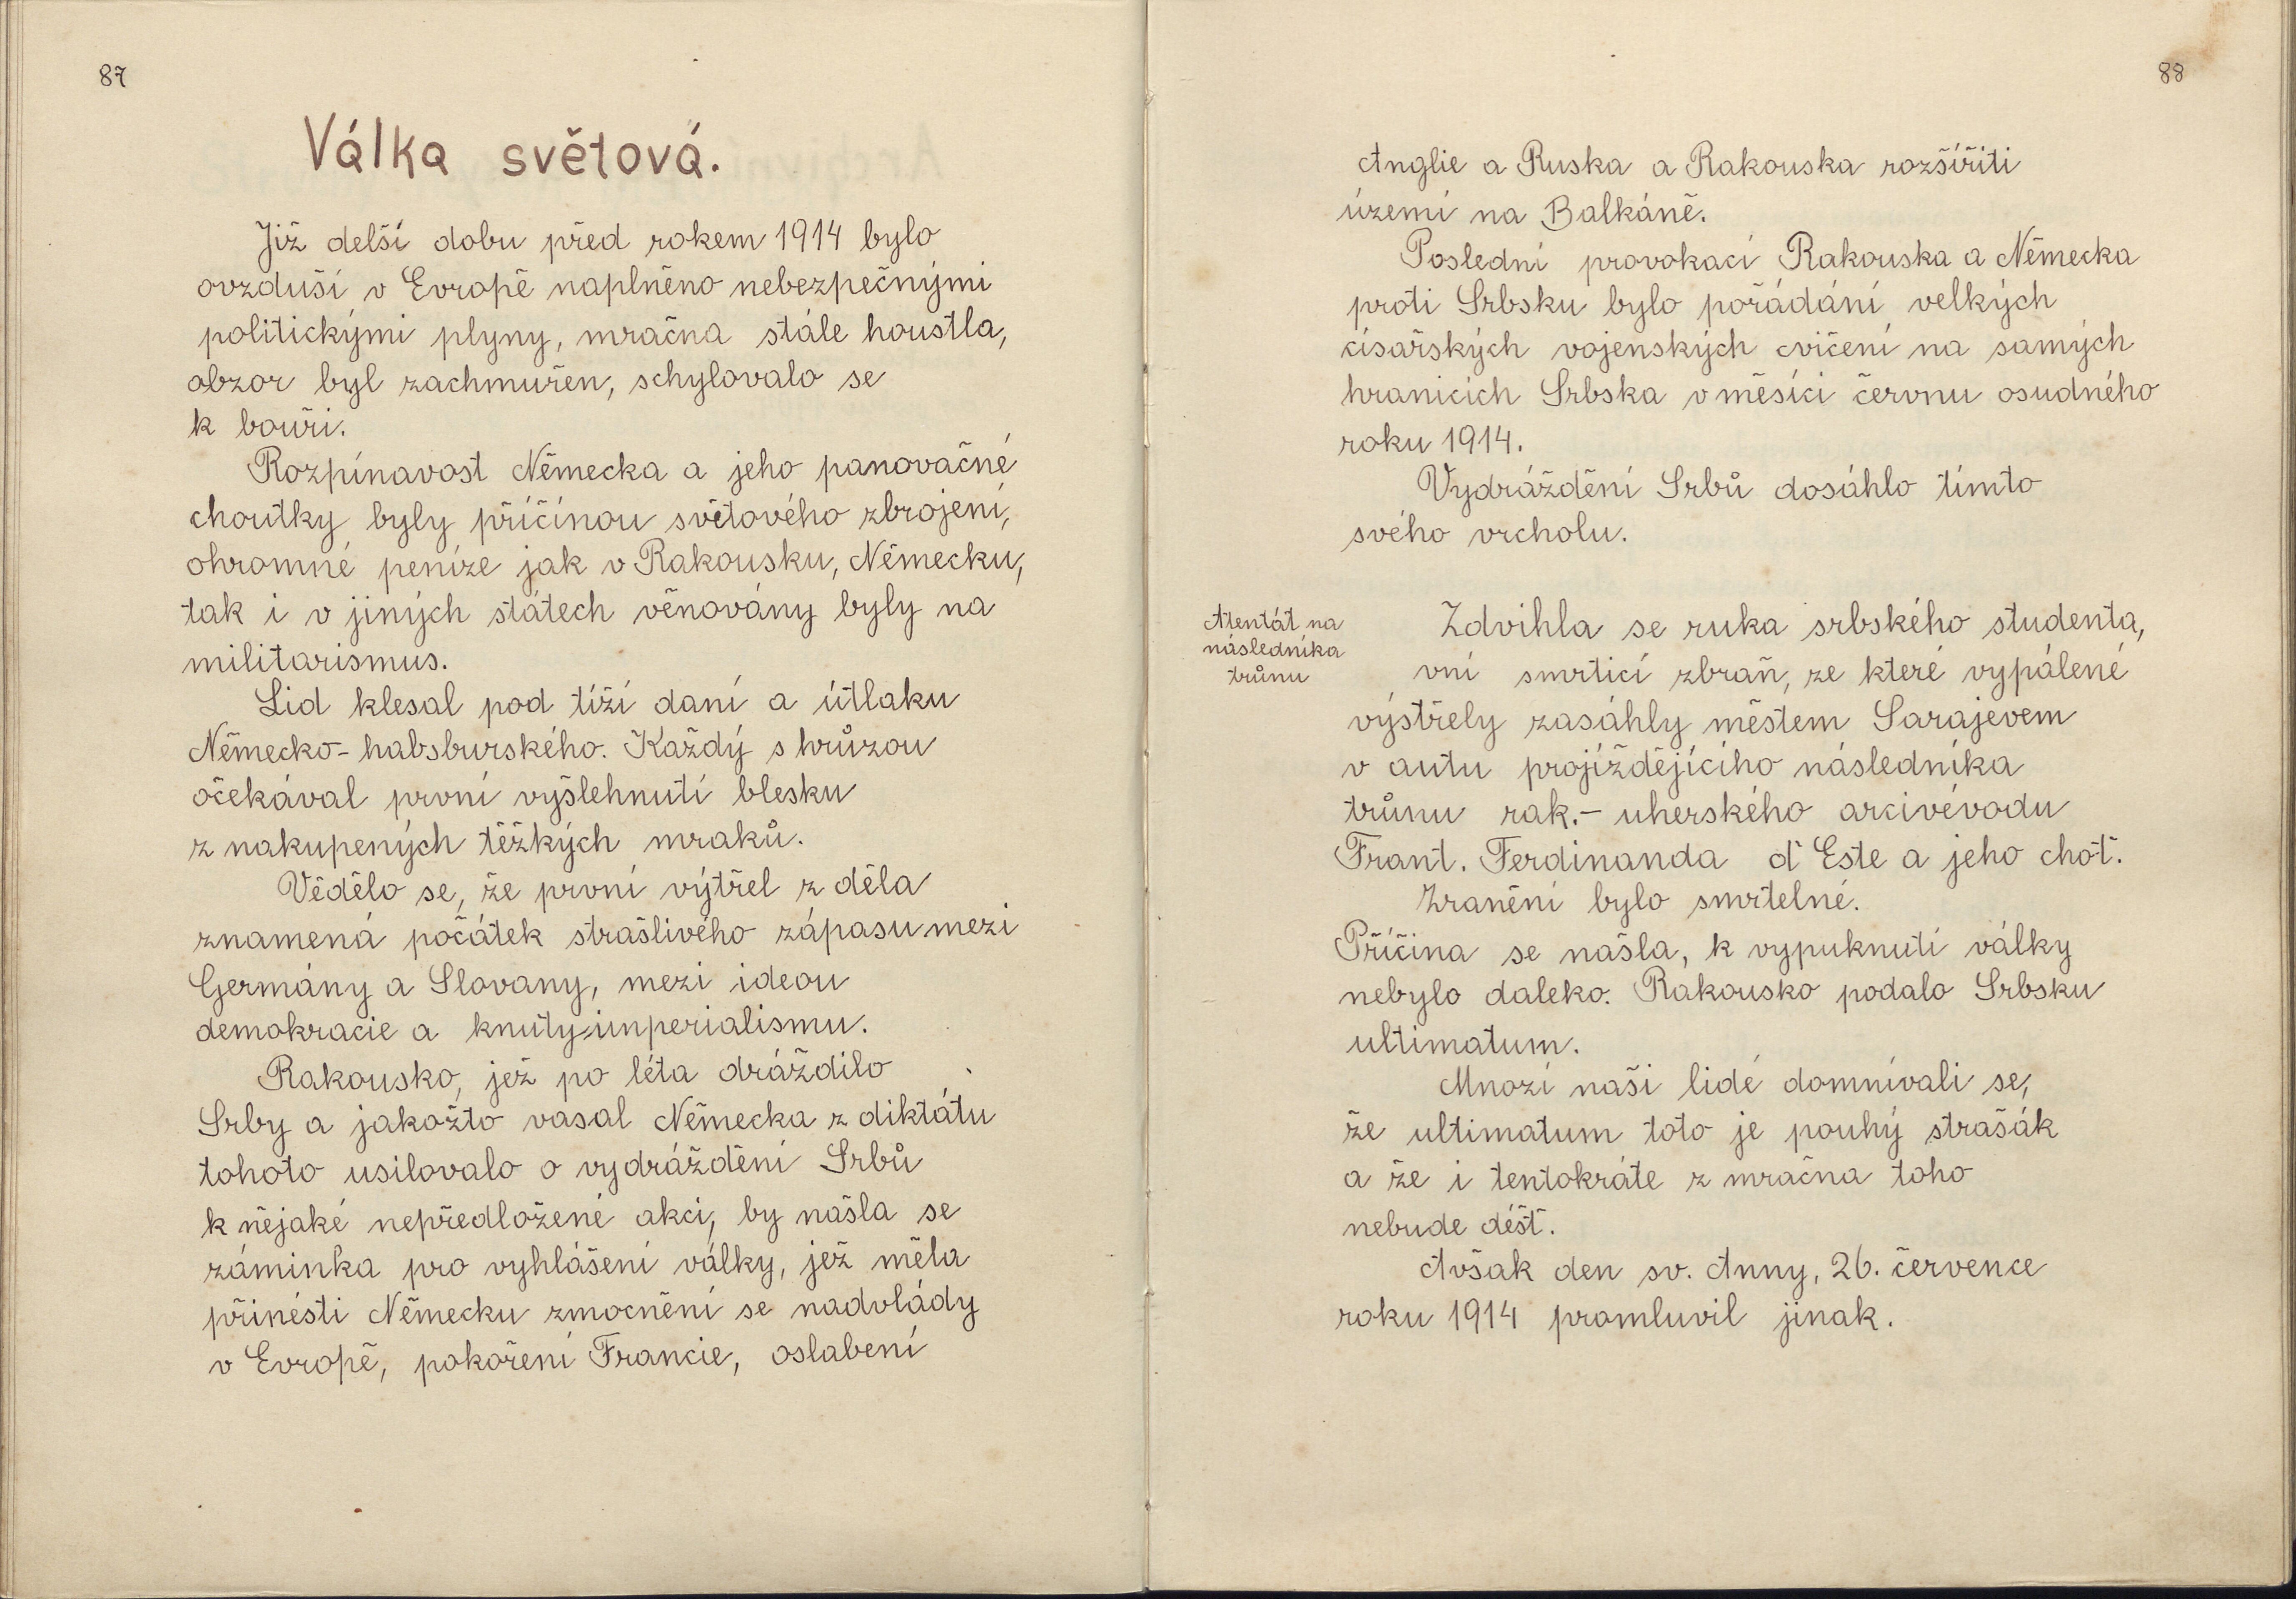 87
Válka světová.
Již delší dobu před rokem 1914 bylo
ovzduší v Evropě naplněno nebezpečnými
politickými plyny, mračna stále houstla,
obzor byl zachmuřen, schylovalo se
k bouři.
Rozpínavost Německa a jeho panovačné
choutky byly příčinou světového zbrojení,
ohromné peníze jak v Rakousku, Německu,
tak i v jiných státech věnovány byly na
militarismus.
Lid klesal pod tíží daní a útlaku
Německo-habsburského. Každý s hrůzou
očekával první vyšlehnutí blesku
z nakupených těžkých mraků.
Vědělo se, že první výtřel z děla
znamená počátek strašlivého zápasu mezi
Germány a Slovany, mezi ideou
demokracie a knuty-imperialismu.
Rakousko, jež po léta dráždilo
Srby a jakožto vasal Německa z diktátu
tohoto usilovalo o vydráždění Srbů
k nějaké nepředložené akci, by našla se
záminka pro vyhlášení války, jež měla
přinésti Německu zmocnění se nadvlády
v Evropě, pokoření Francie, oslabení
88
Anglie a Ruska a Rakouska rozšířiti
území na Balkáně.
Poslední provokací Rakouska a Německa
proti Srbsku bylo pořádání velkých
císařských vojenských cvičení na samých
hranicích Srbska v měsíci červnu osudného
roku 1914.
Vydráždění Srbů dosáhlo tímto
svého vrcholu.
Atentát na
následníka
trůnu
Zdvihla se ruka srbského studenta,
vní smrtící zbraň, ze které vypálené
výstřely zasáhly městem Sarajevem
v autu projíždějícího následníka
trůnu rak.- uherského arcivévodu
Frant. Ferdinanda d' Este a jeho choť.
Zranění bylo smrtelné.
Příčina se našla, k vypuknutí války
nebylo daleko. Rakousko podalo Srbsku
ultimatum.
Mnozí naši lidé domnívali se,
že ultimatum toto je pouhý strašák
a že i tentokráte z mračna toho
nebude déšť.
Avšak den sv. Anny, 26. července
roku 1914 promluvil jinak.